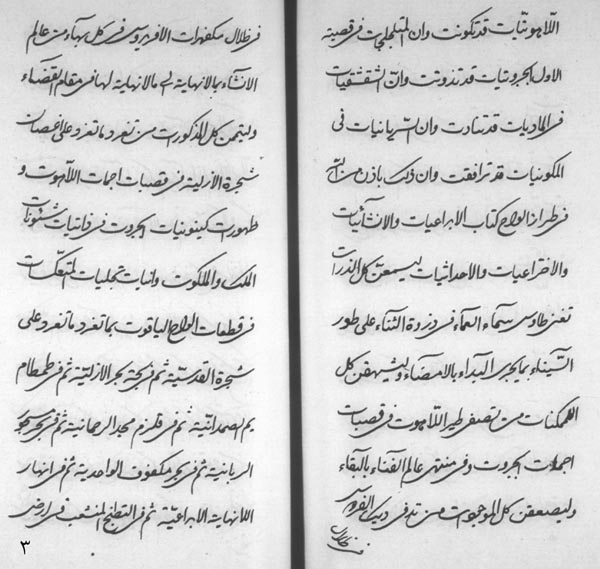 اللاهوتيات قد تكونت وان المتلجلجات فى قصبة
الاول الجبروتيات قد تذوتت وان الشقشقيات
فى الهاديات قد تنادت وان السريانيات فى
الملكوتيات قد ترافقت وان ذلك باذن من الله
فى طراز الواح كتاب الابداعيات والانشائيات
والاختراعيات والاحداثيات ليسمعن كل الذرات
تغنى طاوس سماء العماء فى ذروة الثناء على طور
السيناء بما يجرى البداء بالامضاء وليشهقن كل
الممكنات من تصفر طير اللاهوت فى قصبات
اجمات الجبروت وفى منتهى عالم الفناء بالبقاء
وليصعقن كل الموجودات من تدفى ديك الفردوس
فى ظلال
فى ظلال مكفهرات الافريدوس فى كل بهاء من عالم
الانشاء بما لانهاية الى ما لانهاية لها فى مقام القضاء
وليتمن كل المذكورات من تغرد ما تغرد على اغصان
شجرة الازلية فى قصبات اجمات اللاهوت و
ظهورات كينونيات الجبروت فى ذاتيات شئونات
الملك والملكوت وانيات تجليات المتعكسات
فى قطعات الواح الياقوت بما تغرد ما تغرد على
شجرة القدسية ثم فى لجة بحر الازلية ثم فى طمطام
يم الصمدانية ثم فى قلزم مجد الرحمانية ثم فى بحر
الربانية ثم فى بحر مكفوف الواحدية ثم فى انهار
اللانهاية الابداعية ثم فى التطنج المنشعب فى ارض
٣